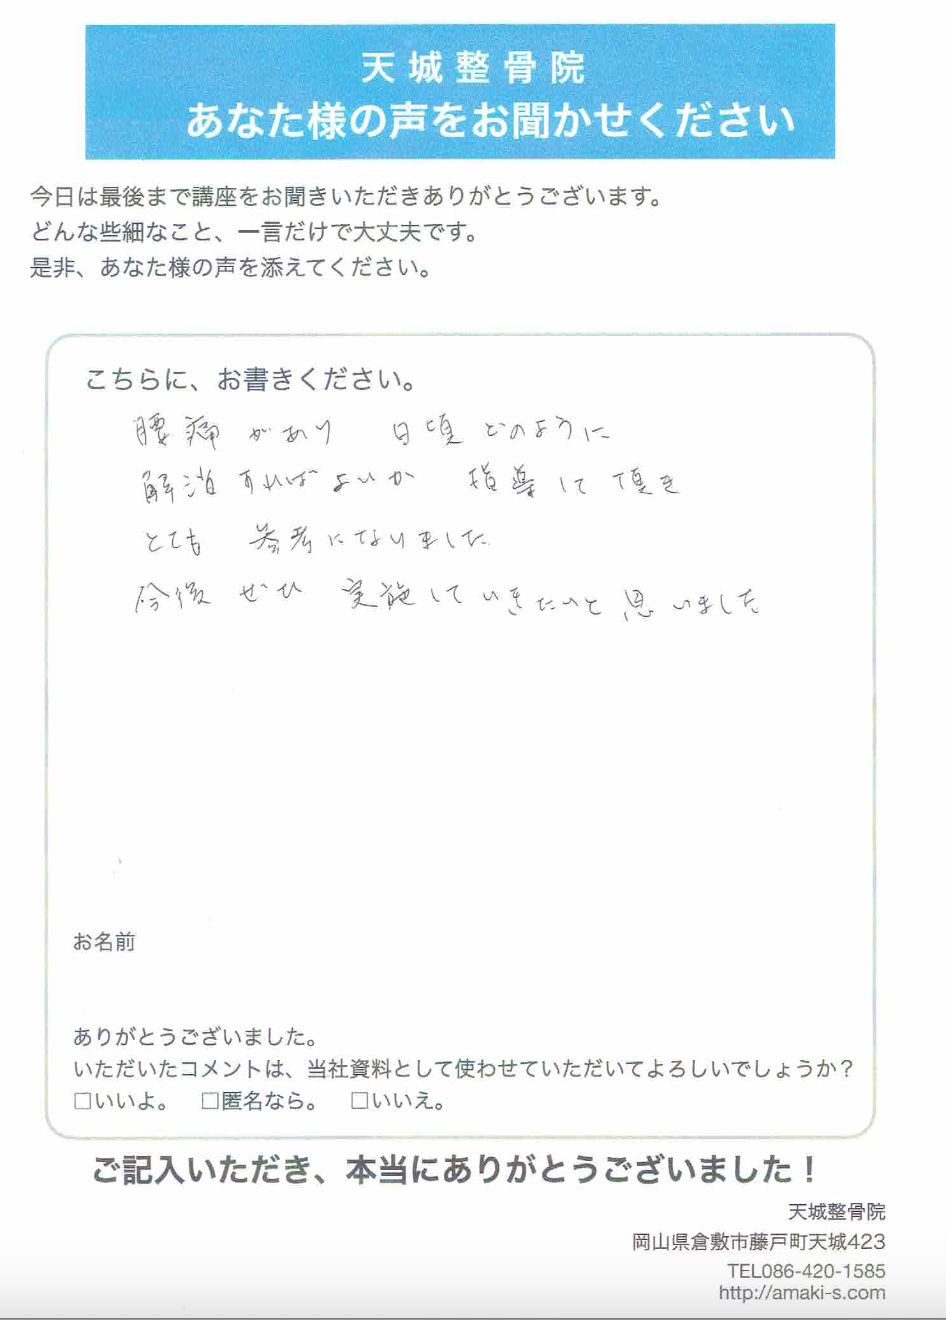 天城整骨院
あなた様の声をお聞かせください
今日は最後まで講座をお聞きいただきありがとうございます。
どんな些細なこと、一言だけで大丈夫です。
是非、あなた様の声を添えてください。
こちらに、お書きください。
腰痛があり 日頃どのように
解消すればよいか 指導して頂き
とても 参考になりました
今後 ぜひ 実施していきたいと思いました
お名前
ありがとうございました。
いただいたコメントは、当社資料として使わせていただいてよろしいでしょうか？
□いいよ。 □匿名なら。 □いいえ。
ご記入いただき、本当にありがとうございました！
天城整骨院
岡山県倉敷市藤戸町天城423
TEL086-420-1585
http://amaki-s.com